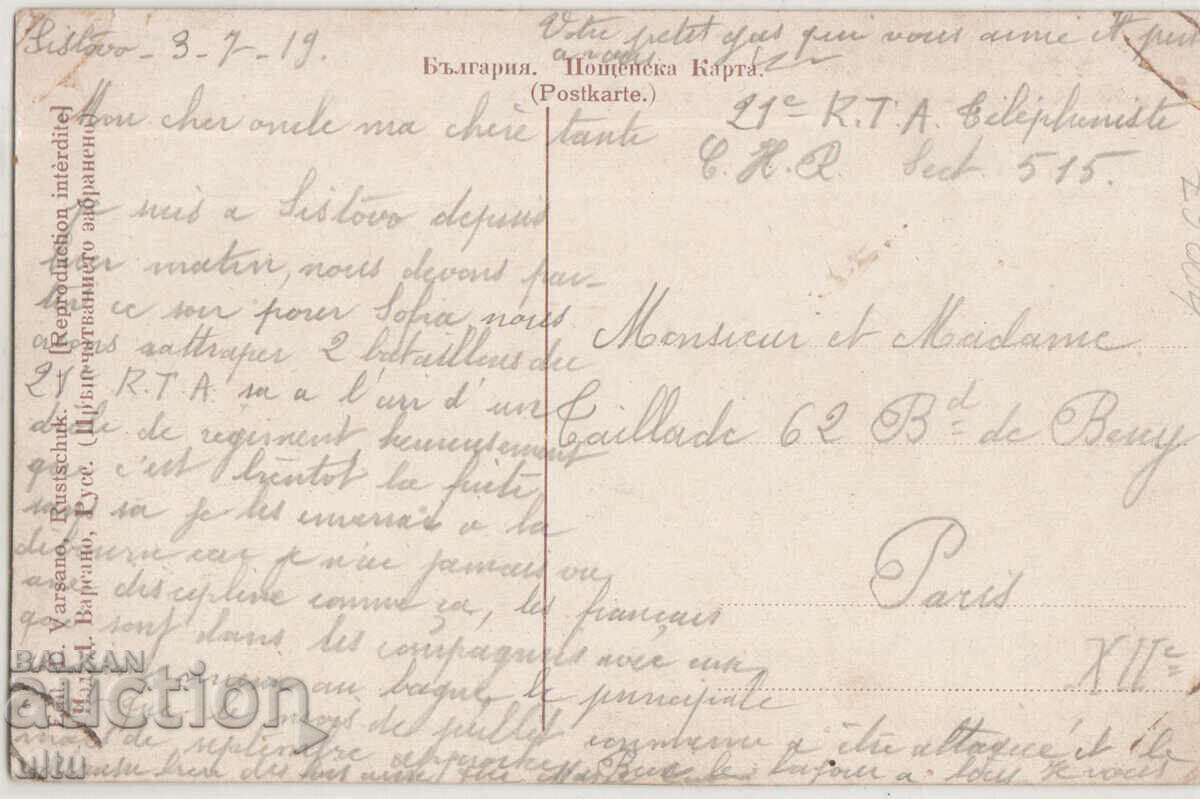 Sistovo - 3 - 7 - 19.
Votre petit gas qui vous aime et
a vous
България. Пощенска Карта.
(Postkarte.)
21e R.T.A. Téléphoniste
C.H.R. Sect. 515.
Mon cher oncle ma chère tante
Je suis a Sistovo depuis
hier matin, nous devons par-
tir ce soir pour Sofia nous
avons rattraper 2 bataillons du
21e R.T.A sa a l'air d'un
drôle de régiment heureusement
que c'est bientot la fuite,
sans sa je les enverrais a la
car je n'ai jamais vu
une discipline comme ça, les français
qui sont dans les compagnies avec eux
au bagne, le principale
mois de juillet commence a être attaqué et le
mois de septembre approche
a tous
vous
Monsieur et Madame
Taillade 62 Bd de Bercy
Paris
XIIe
Edit. D. Varsano, Rustschuk. [Reproduction intèrdite]
Издава Д. Варсано, Русе. (Пръпечатването забранено)
BALKAN
auction
ultu